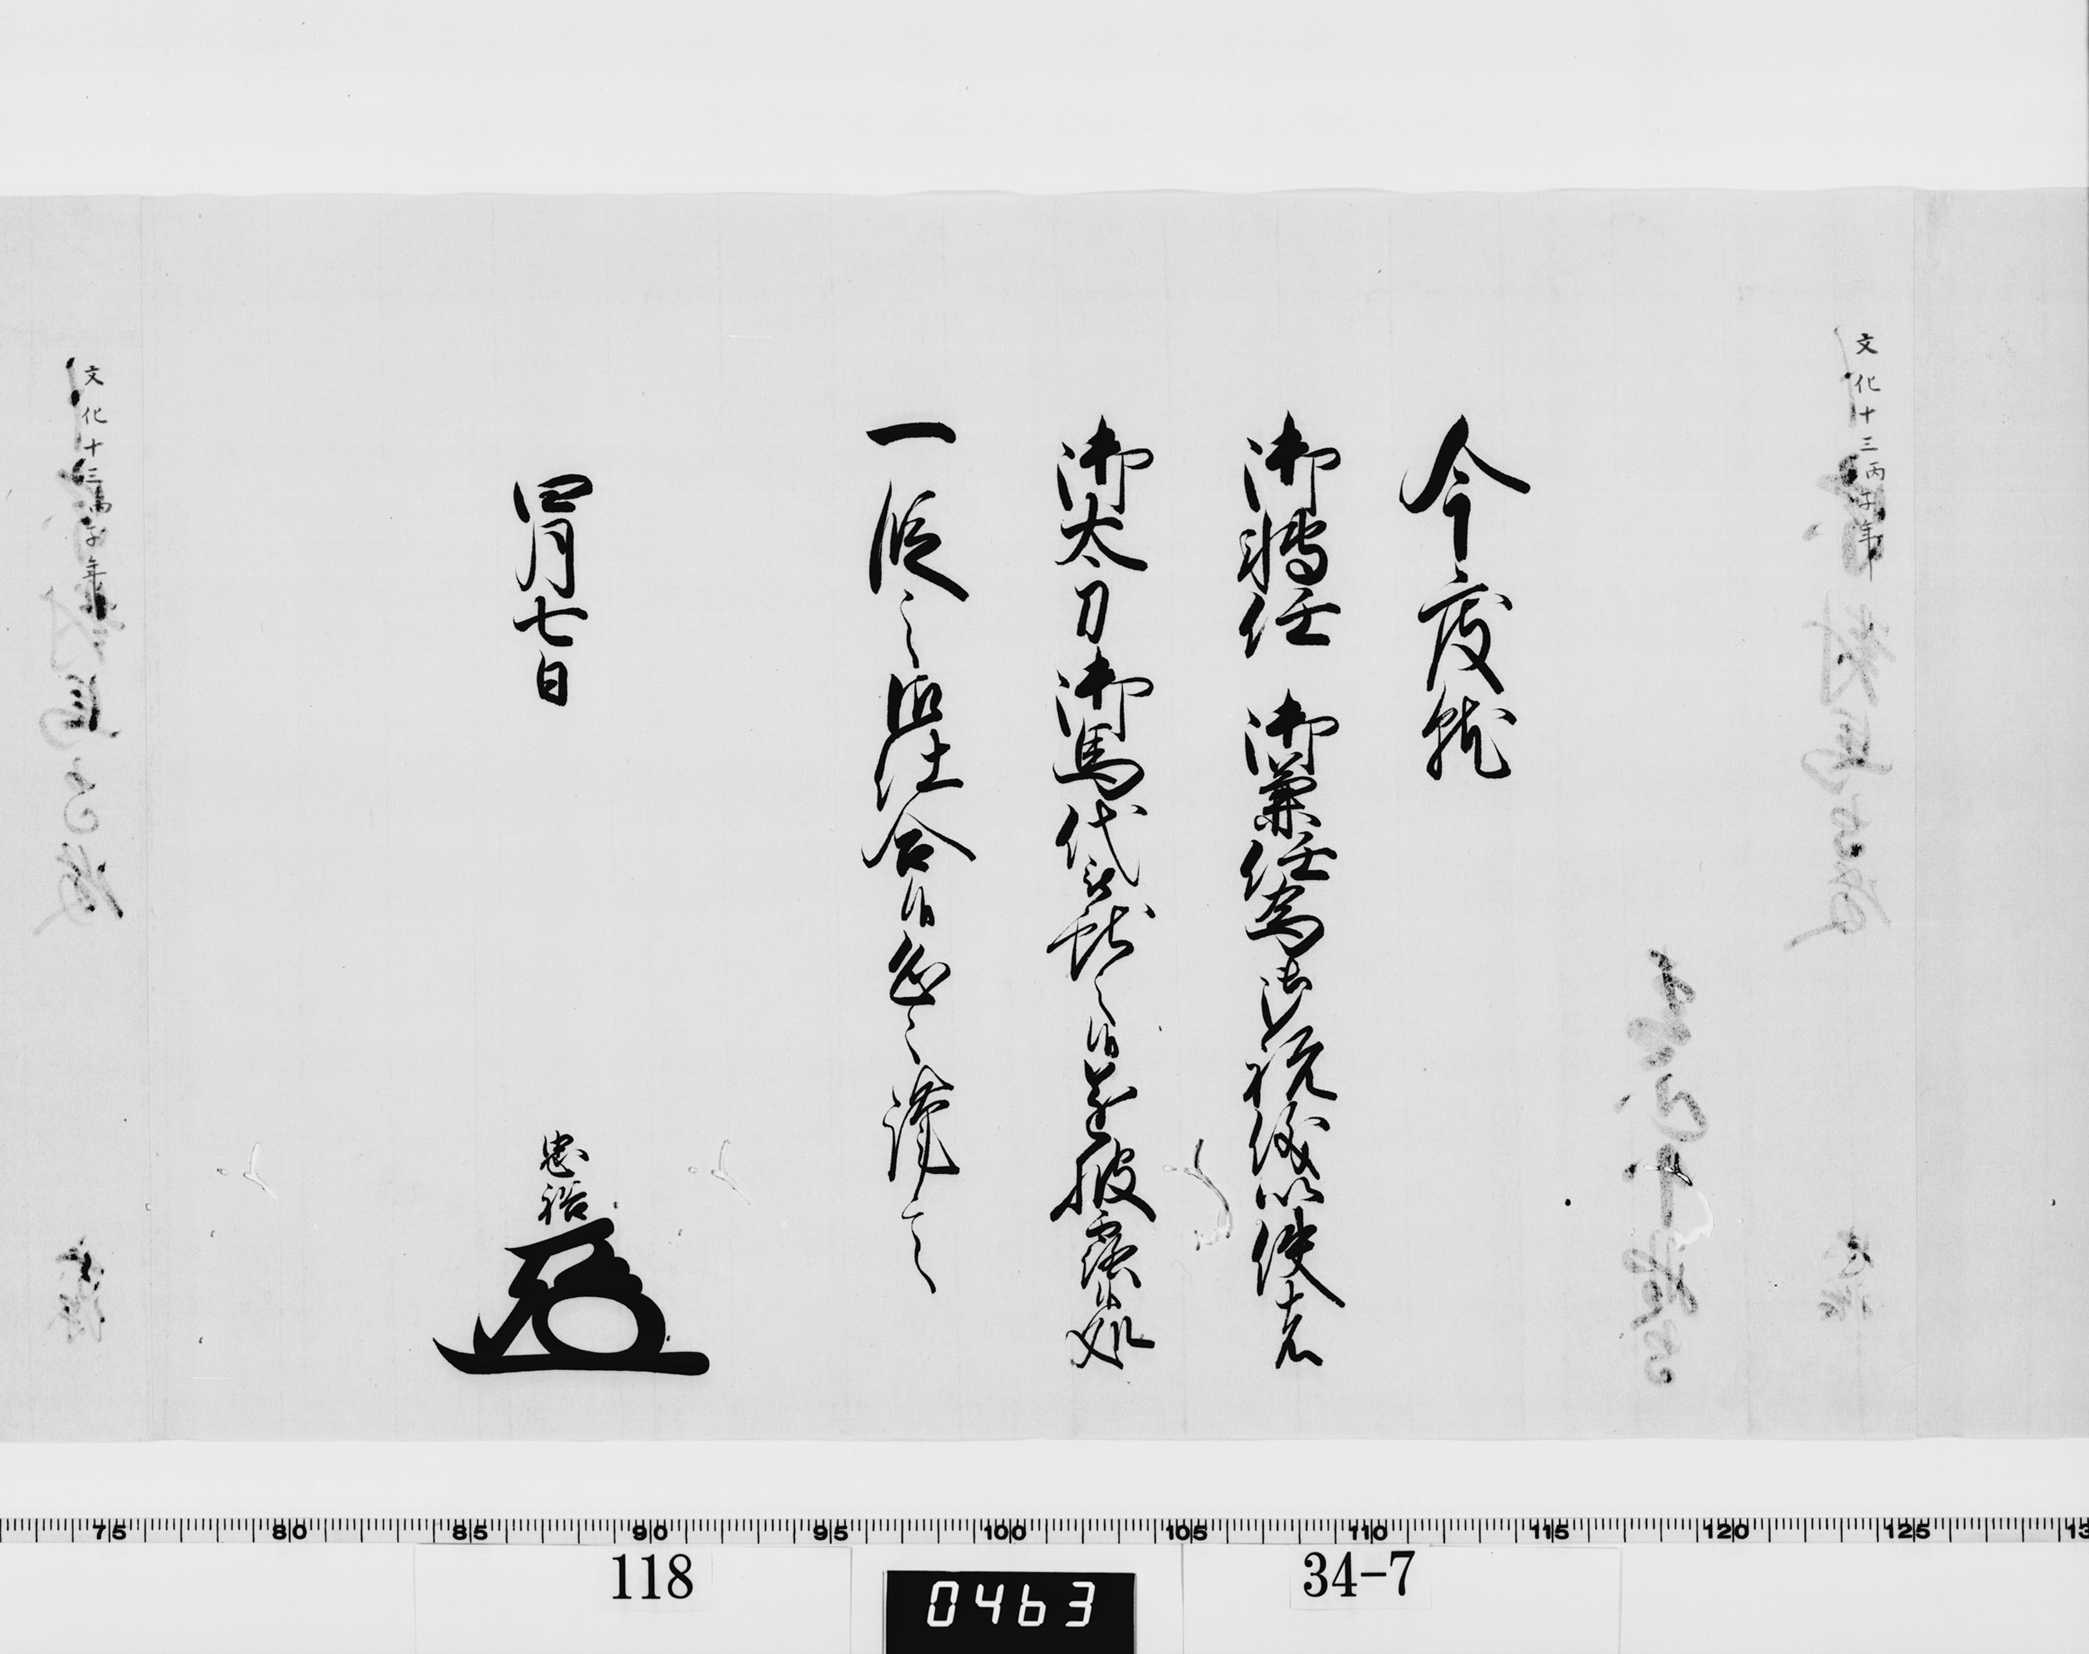 文化十三丙子年
今度就
御轉任 御兼任為御祝儀以使者
御太刀御馬代被獻之候遂披露候処
一段之御仕合候恐々謹言
四月七日
忠裕
文化十三丙子年
75 80 85 90 95 100 105 110 115 120 125 13
118
0463
34-7